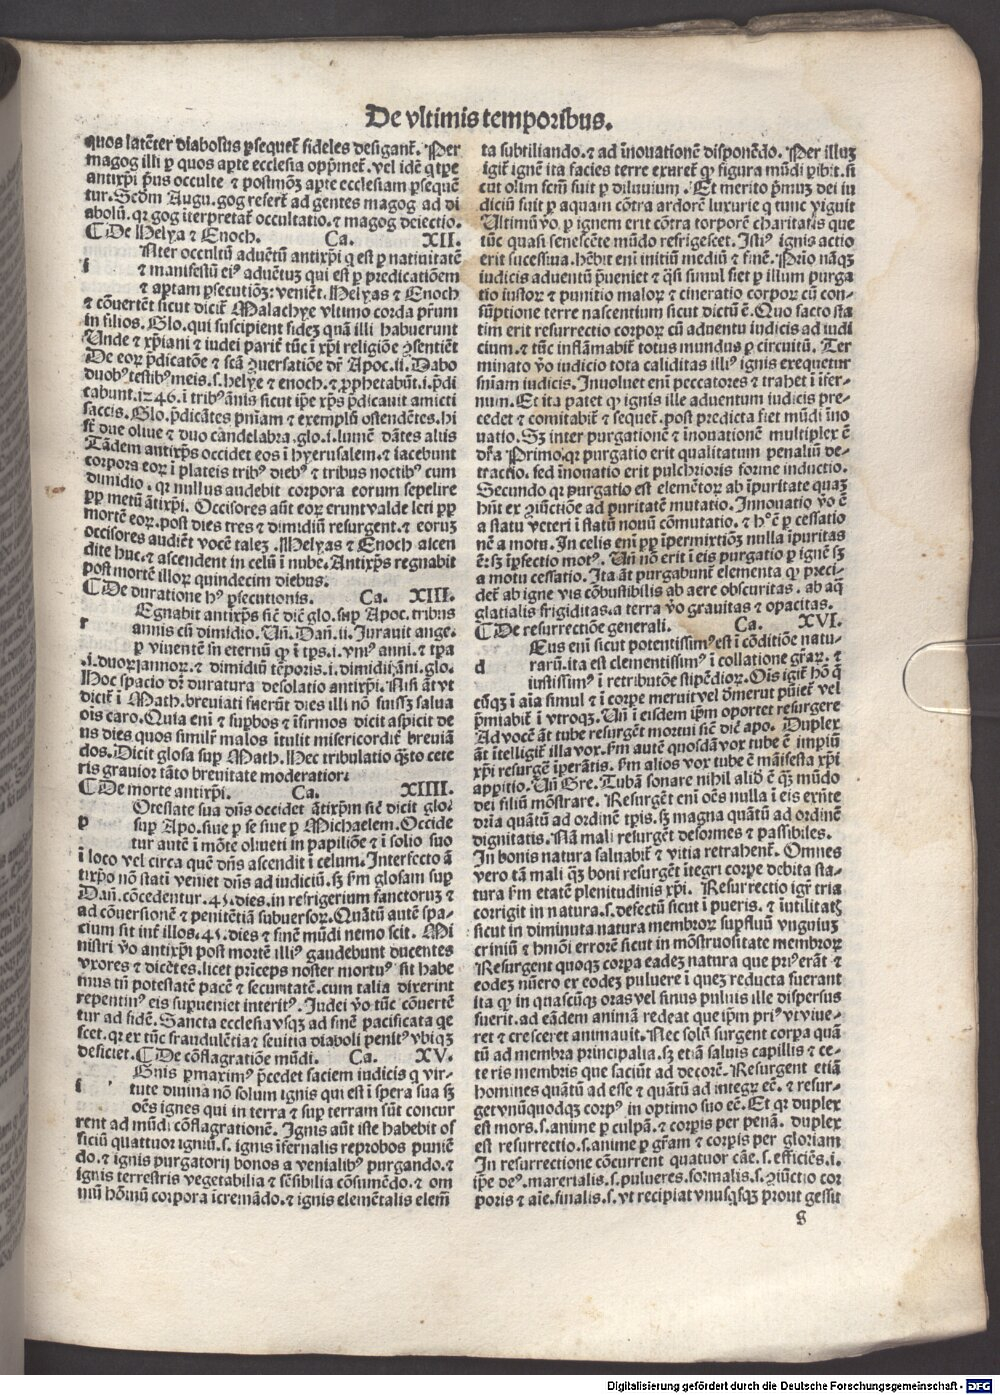 De vltimis temporibus.
quos latēter diabolus ꝑsequet̄ fideles designant̄. Per
magog illi ꝑ quos aperte ecclesia opprimet̄. vel idē q̄ tꝑe
antixp̄i p̄us occulte ⁊ postmoꝝ aperte ecclesiam ꝑsequē
tur. Scd̄m Augu. gog refert̄ ad gentes magog ad di
abolū. qꝛ gog iterpretat̄ occultatio. ⁊ magog deiectio.
¶ De Helya ⁊ Enoch. Ca. XII.
Nter occultū aduētū antixp̄i q̄ est ꝑ natiuitatē
i ⁊ manifestū eiꝰ aduētuꝫ qui est ꝑ predicatiōem
⁊ aptam ꝑsecutiōꝫ: veniēt. Helyas ⁊ Enoch
⁊ cōuertēt sicut dicit̄ Malachye vltimo corda pr̄um
in filios. Glo. qui suscipient fideꝫ quā illi habuerunt
Unde ⁊ xp̄iani ⁊ iudei parit̄ tūc ī xp̄i religiōe ꝯsentiēt
De eoꝝ p̄dicatōe ⁊ scā ꝯuersatiōe dr̄ Apoc. ii. Dabo
duobꝰ testibꝰ meis. s. helye ⁊ enoch. ⁊ ꝓphetabūt. i. p̄di
cabunt. 1246. ī tribꝰ ānis sicut ip̄e xp̄s p̄dicauit amicti
saccis. Glo. p̄dicātes pn̄iam ⁊ exemplū ostendētes. hi
st̄ due oliue ⁊ duo candelabra. glo. i. lumē dātes aliis
Tādem antixp̄s occidet eos ī hyerusalem. ⁊ iacebunt
corpora eoꝝ ī plateis tribꝰ diebꝰ ⁊ tribus noctibꝰ cum
dimidio. qꝛ nullus audebit corpora eorum sepelire
ꝓp̄ metū ātixp̄i. Occisores aūt eoꝝ erunt valde leti ꝓp̄
mortē eoꝝ. post dies tres ⁊ dimidiū resurgent. ⁊ eoruꝫ
occisores audiēt vocē taleꝫ. Helyas ⁊ Enoch ascen
dite huc. ⁊ ascendent in celū ī nube. Antixp̄s regnabit
post mortē illoꝝ quindecim diebus.
¶ De duratione hꝰ ꝑsecutionis. Ca. XIII.
Egnabit antixp̄s sic̄ dic̄ glo. suꝑ Apoc. tribus
r annis cū dimidio. Un̄. Dan̄. ii. Iurauit ange.
ꝑ viuentē in eternū qꝫ ī tp̄s. i. vnꝰ anni. ⁊ tp̄a
.i. duoꝝ annoꝝ. ⁊ dimidiū tēporis. i. dimidii āni. glo.
Hoc spacio dr̄ duratura desolatio antixp̄i. Nisi āt vt
dicit̄ ī Math. breuiati fuerūt dies illi nō fuissꝫ salua
oīs caro. Quia enī ⁊ suꝑbos ⁊ īfirmos dicit aspicit de
us dies quos simil̄r malos ītulit misericordit̄ breuiā
dos. Dicit glosa suꝑ Math. Hec tribulatio q̄sto cete
ris grauioꝛ tāto breuitate moderatioꝛ
¶ De morte antixp̄i. Ca. XIIII.
Otestate sua dn̄s occidet ātixp̄m sic̄ dicit glo.
p suꝑ Apo. siue ꝑ se siue ꝑ Michaelem. Occide
tur autē ī mōte oliueti in papiliōe ⁊ ī solio suo
ī loco vel circa quē dn̄s ascendit ī celum. Interfecto ā
tixp̄o nō stati veniet dn̄s ad iudiciū. sꝫ ẜm glosam suꝑ
Dan̄. cōcedentur. 45. dies. in refrigerium sanctoruꝫ ⁊
ad cōuersionē ⁊ penitētiā subuersoꝝ. Quātū autē spa-
cium sit int̄ illos. 45. dies ⁊ finē mūdi nemo scit. Mi
nistri v̄o antixp̄i post mortē illiꝰ gaudebunt ducentes
vxores ⁊ dicētes. licet prīceps noster mortuꝰ sit habe
mus tn̄ potestatē pacē ⁊ securitatē. cum talia dixerint
repentinꝰ eis suꝑueniet interitꝰ. Iudei v̄o tūc cōuertē
tur ad fidē. Sancta ecclesia vsqꝫ ad finē pacificata qe
scet. qꝛ ex tūc fraudulētia ⁊ seuitia diaboli penitꝰ vbiqꝫ
deficiet. ¶ De cōflagratiōe mūdi. Ca. XV.
Gnis ꝑmaximꝰ p̄cedet faciem iudicis q̄ vir-
i tute diuina nō solum ignis qui est ī spera sua sꝫ
oēs ignes qui in terra ⁊ suꝑ terram sūt concur
rent ad mūdi cōflagrationē. Ignis aūt iste habebit of
ficiū quattuor igniū. s. ignis īfernalis reprobos puniē
do. ⁊ ignis purgatorij bonos a venialibꝰ purgando. ⁊
ignis terrestris vegetabilia ⁊ sēsibilia cōsumēdo. ⁊ om
niū hōinū corpora īcremādo. ⁊ ignis elemētalis elem̄
ta subtiliando. ⁊ ad īnouationē disponēdo. Per illuꝫ
igit̄ ignē ita facies terre exuret̄ qꝫ figura mūdi ꝑibit. si
cut olim fcm̄ fuit ꝑ diluuium. Et merito p̄muꝫ dei iu
dicium fuit ꝑ aquam cōtra ardorē luxurie q̄ tunc viguit
Ultimū v̄o ꝑ ignem erit cōtra torporē charitatis que
tūc quasi senescēte mūdo refrigescet. Istiꝰ ignis actio
erit succesiua. hēbit enī initiū mediū ⁊ finē. Prīo nāqꝫ
iudicis aduentū p̄ueniet ⁊ q̄si simul fiet ꝑ illum purga
tio iustoꝝ ⁊ punitio maloꝝ ⁊ cineratio corpoꝝ cū con-
sūptione terre nascentium sicut dictū ē. Quo facto sta
tim erit resurrectio corpoꝝ cū aduentu iudicis ad iudi
cium. ⁊ tūc inflāmabit̄ totus mundus ꝑ circuitū. Ter
minato v̄o iudicio tota caliditas illiꝰ ignis exequetur
sn̄iam iudicis. Inuoluet enī peccatores ⁊ trahet ī īfer-
num. Et ita patet qꝫ ignis ille aduentum iudicis pre-
cedet ⁊ comitabit̄ ⁊ sequet̄. post predicta fiet mūdi īno
uatio. Sꝫ inter purgationē ⁊ īnouationē multiplex ē
dr̄a Primo. qꝛ purgatio erit qualitatum penaliū de-
tractio. sed īnouatio erit pulchrioris forme inductio.
Secundo qꝛ purgatio est elemētoꝝ ab īpuritate quaꝫ
hn̄t ex ꝯiūctiōe ad puritatē mutatio. Innouatio v̄o ē
a statu veteri ī statū nouū cōmutatio. ⁊ hꝰ ē ꝑ cessatio
nē a motu. In celis enī ꝓp̄ īpermixtiōꝫ nulla īpuritas
ē: sꝫ īpfectio motꝰ. Un̄ nō erit ī eis purgatio ꝑ ignē sꝫ
a motu cessatio. Ita āt purgabunt̄ elementa qꝫ preci-
det̄ ab igne vis cōbustibilis ab aere obscuritas. ab aq̄
glacialis frigiditas. a terra v̄o grauitas ⁊ opacitas.
¶ De resurrectiōe generali. Ca. XVI.
Eus enī sicut potentissimꝰ est ī cōditiōe natu-
d rarū. ita est clementissimꝰ ī collatione gr̄aꝝ. ⁊
iustissimꝰ ī retributōe stipēdioꝝ. Oīs igit̄ hō q̄
cūqꝫ ī aīa simul ⁊ ī corꝑe meruit vel d̄merut pūiet̄ vel
p̄miabit̄ ī vtroqꝫ. Un̄ ī eisdem ip̄m oportet resurgere
Ad vocē āt tube resurgēt mortui sic̄ dic̄ apo. Duplex
āt ītelligit̄ illa vox. ẜm autē quosdā vox tube ē impiū
xp̄i resurgē īperātis. ẜm alios vox tube ē māifesta xp̄i
apꝑitio. Un̄ Gre. Tubā sonare nihil aliḋ ē qꝫ mūdo
dei filiū mōstrare. Resurgēt enī oēs nulla ī eis exn̄te
dr̄ia quātū ad ordinē tp̄is. sꝫ magna quātū ad ordinē
dignitatis. Nā mali resurgēt deformes ⁊ passibiles.
In bonis natura saluabit̄ ⁊ vitia retrahent̄. Omnes
vero tā mali qꝫ boni resurgēt īteģri corꝑe debita sta-
tura ẜm etatē plenitudinis xp̄i. Resurrectio igr̄ tria
corrigit in natura. s. defectū sicut ī pueris. ⁊ īutilitatꝫ
sicut in diminuta natura membroꝝ suꝑfluū vnguiuꝫ
criniū ⁊ hmōi errorē sicut in mōstruositate membroꝝ
Resurgent quoqꝫ corꝑa eadeꝫ natura que priꝰ erāt ⁊
eodeꝫ nūero ex eodeꝫ puluere ī queꝫ reducta fuerant
ita qꝫ in quascūqꝫ oras vel sinus puluis ille dispersus
fuerit. ad eādem animā redeat que ip̄m priꝰ vt viue-
ret ⁊ cresceret animauit. Nec solū surgent corꝑa quā
tū ad membra principalia. sꝫ etiā saluis capillis ⁊ ce-
te ris membris que faciūt ad decorē. Resurgent etiā
homines quātū ad esse ⁊ quātū ad integꝝ eē. ⁊ resur-
get vnūquodqꝫ corpꝰ in optimo suo eē. Et qꝛ duplex
est mors. s. anime ꝑ culpā. ⁊ corꝑis per penā. duplex
est resurrectio. s. anime ꝑ gr̄am ⁊ corꝑis per gloriam
In resurrectione cōcurrent quatuor cāe. s. efficiēs. i.
ip̄e deꝰ. marerialis. s. pulueres. formalis. s. ꝯiūctio cor
poris ⁊ aīe. finalis. s. vt recipiat vnusqꝫsqꝫ prout gessit
g
Digitalisierung gefördert durch die Deutsche Forschungsgemeinschaft - DFG